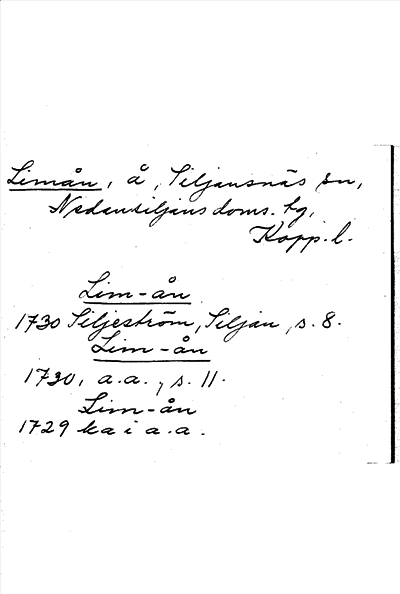 Limån, å, Siljansnäs sn,
Nedansiljans doms. tg,
Kopp. l.
Lim-ån
1730 Siljeström, Siljan, s. 8.
Lim-ån
1730, a.a., s. 11.
Lim-ån
1729 ka i a.a.